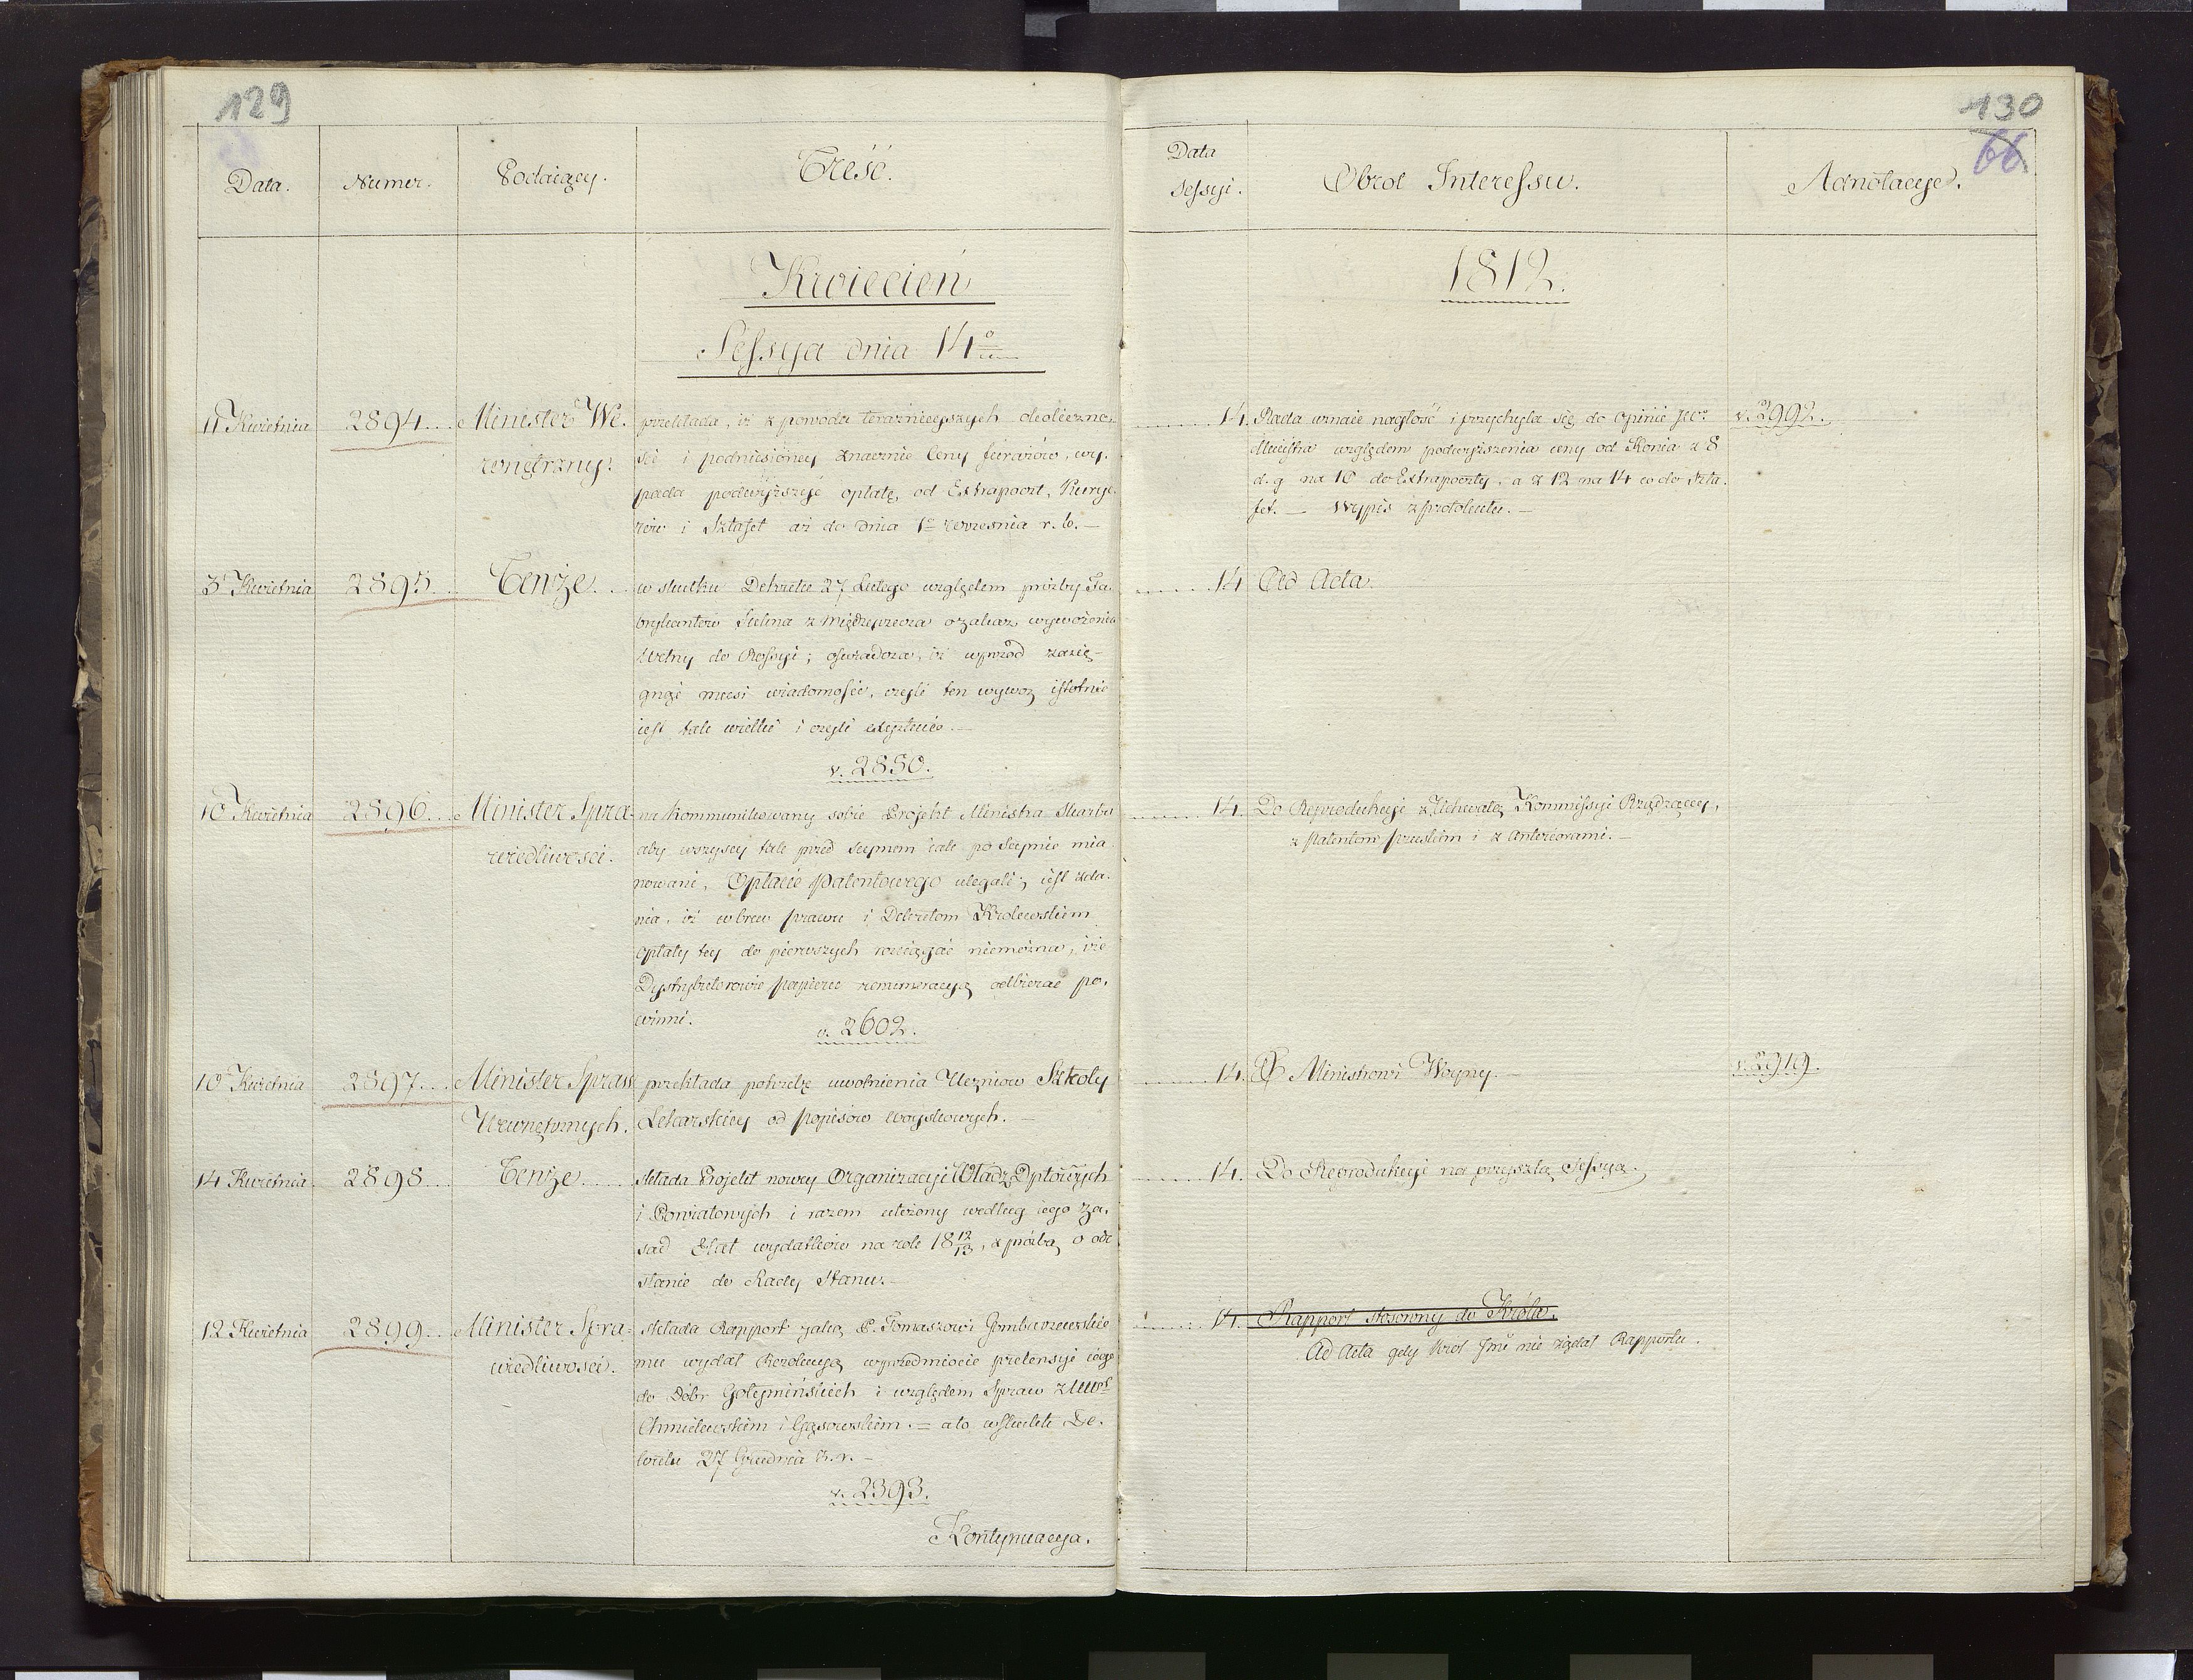 129
Data.
Numer.
Podaiący.
Treść.
Kwiecień
Sessya dnia 14º
11 Kwietnia
2894
Minister We-
wnętrzny.
przekłada, iż z powodu teraźnieyszych okoliczno-
ści i podniesioney znacznie Ceny furażów, wy-
pada podwyższyć opłatę, od Extrapoczt, Kurye-
rów i Sztafet aż do dnia 1º września r. b. —
3 Kwietnia
2895
Tenże
w skutku Dekretu 27 Lutego względem proźby Fa-
brykantów Sukna z Międzyrzecza o zakaz wywożenia
Wełny do Rossyi; oświadcza, iż wprzód zasię-
gnąć musi wiadomość, czyli ten wywoz istotnie
iest tak wielki i czyli existuie. —
v. 2850.
10 Kwietnia
2896
Minister Spra-
wiedliwości.
na kommunikowany sobie Projekt Ministra Skarbu
aby wszyscy tak przed Seymem iak po Seymie mia-
nowani, Opłacie Patentowego ulegali; iest zda-
nia, iż wbrew prawu i Dekretom Krolewskim
opłaty tey do pierwszych rozciągać niemożna, i że
Dystrybutorowie papieru remuneracyą odbierać po-
winni.
v. 2602.
10 Kwietnia
2897
Minister Spraw
Wewnętrznych.
przekłada potrzebę uwolnienia Uczniow Szkoły
Lekarskiey od popisów woyskowych. —
14 Kwietnia
2898
Tenże
składa Projekt nowey Organizacyi Władz Dptowych
i Powiatowych i razem ułożony według iego za-
sad Etat wydatków na rok 18 12/13, z proźbą o ode-
słanie do Rady Stanu. —
12 Kwietnia
2899
Minister Spra-
wiedliwości.
składa Rapport jaką P. Tomaszowi Gombarzewskie-
mu wydał Rezolucyą w przedmiocie pretensyi iego
do Dóbr Gołymińskich i względem Spraw z
Chmielewskim i Gąsowskim. = a to w skutek De-
kretu 27 Grudnia z. r. —
v. 2393.
Kontynuacya.
130
66.
Data
Sessyi.
Obrot Interessu.
Adnotacye.
1812.
14. Rada uznaie nagłość i przychyla się do opinii JWº
Ministra względem podwyższenia ceny od Konia z 8
d. g na 10 do Extrapoczty, a z 12 na 14 co do Szta-
fet. — Wypis z protokułu. —
v. 2992.
14 Ad Acta.
14. Do Reprodukcyi z Uchwałą Kommissyi Rządzącey,
z Patentem pruskim i z Anterioarami. —
14. Ministrowi Woyny. —
v. 2919.
14. Do Reprodukcyi na przyszłą Sessyą.
14. Rapport stosowny do Króla.
Ad Acta gdy Krol Jmć nie żądał Rapportu.